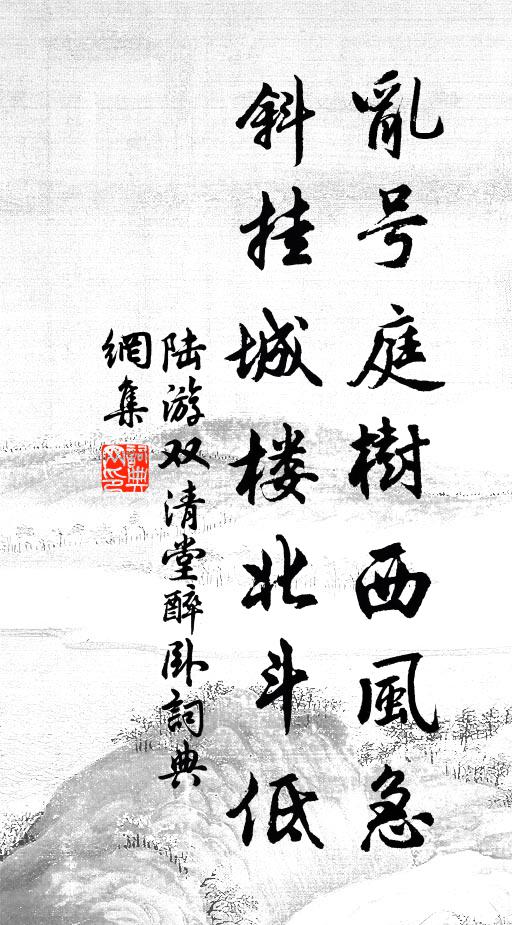 亂号庭樹西風急
斜挂城楼北斗低
陆游双清堂醉卧詞典
網集
詞典
网印